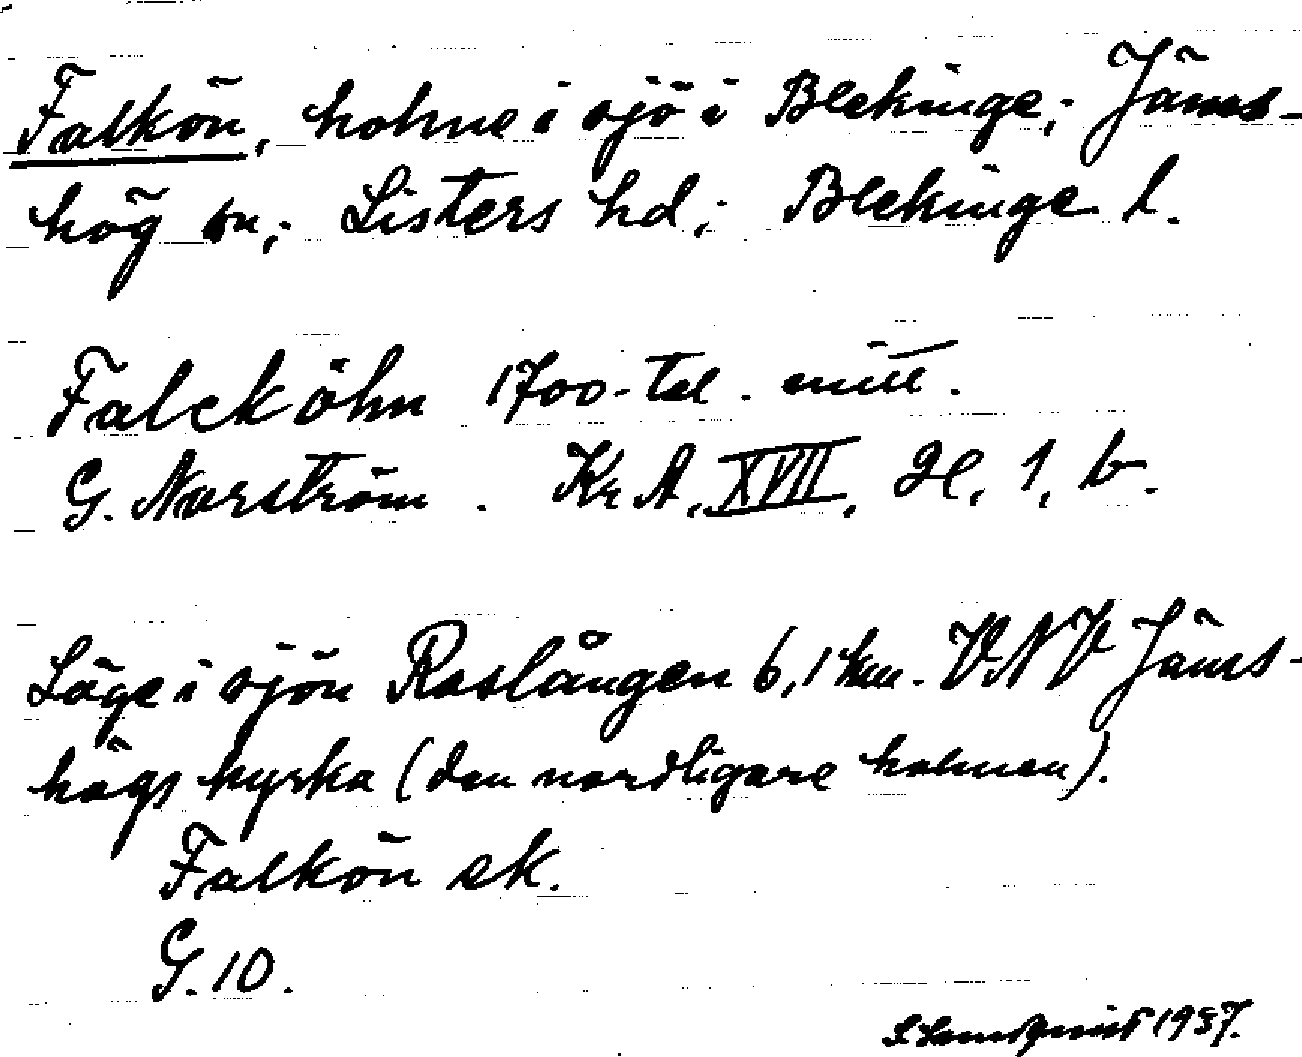 Falkön, holme i sjö i Blekinge; Jäms-
hög sn; Listers hd; Blekinge l.
Falcköhn 1700-tal. mitt.
G. Norström. Kr A, XVII, 2e, 1, b.
Läge i sjön Raslången 6,1 km. VNV Jäms-
högs kyrka (den nordligare holmen).
Falkön ek.
G. 10.
1937.